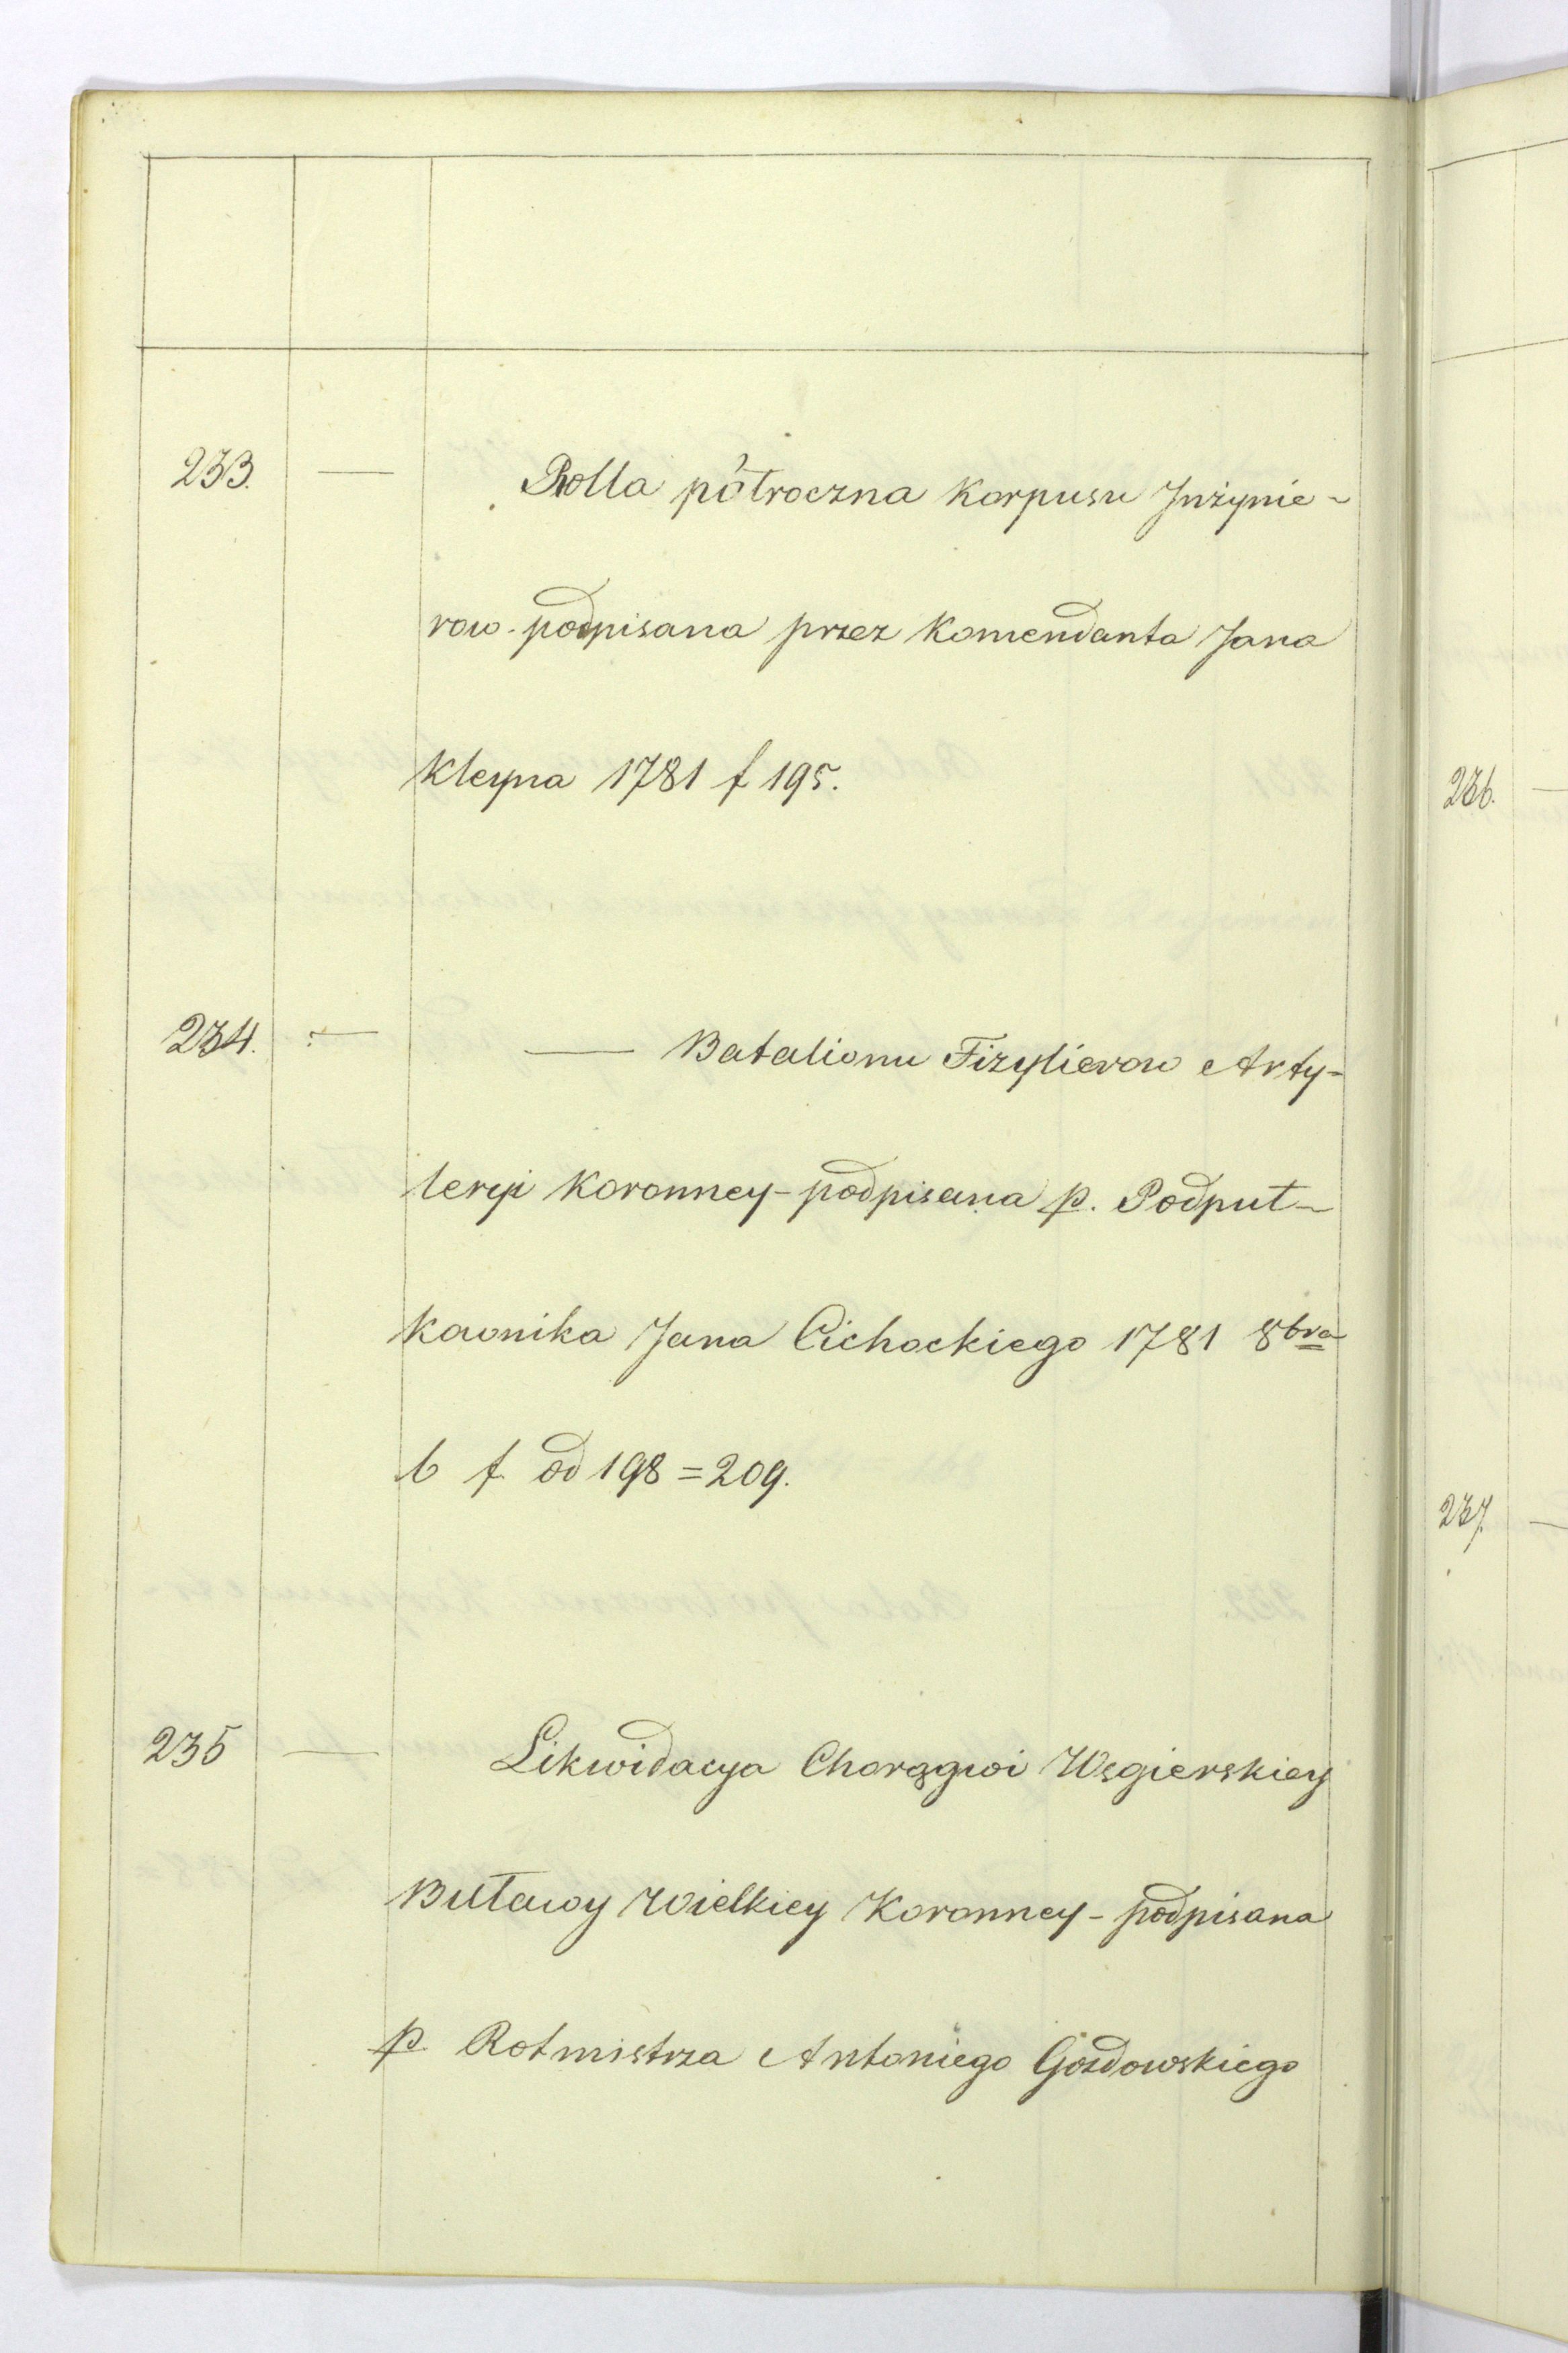 233. — Rolla półroczna Korpusu Jnżynie-
row - podpisana przez Komendanta Jana
Kleyna 1781 f 195.
234. — — Batalionu Fizylierow Arty-
leryi Koronney - podpisana p. Podpuł-
kownika Jana Cichockiego 1781 8bra
6 f od 198 = 209.
235 — Likwidacya Chorągwi Węgierskiey
Buławy Wielkiey Koronney - podpisana
p Rotmistrza Antoniego Gozdowskiego
236. —
237. —